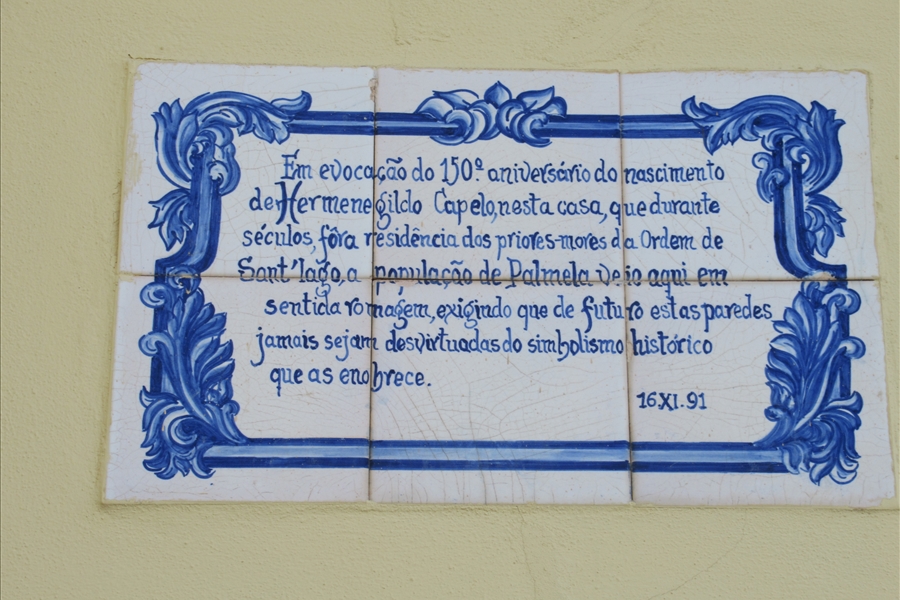 Em evocação do 150º aniversário do nascimento
de Hermenegildo Capelo, nesta casa, que durante
séculos, fôra residência dos priores-mores da Ordem de
Sant'Iago, a população de Palmela veio aqui em
sentida romagem, exigindo que de futuro estas paredes
jamais sejam desvirtuadas do simbolismo histórico
que as enobrece.
16.XI.91